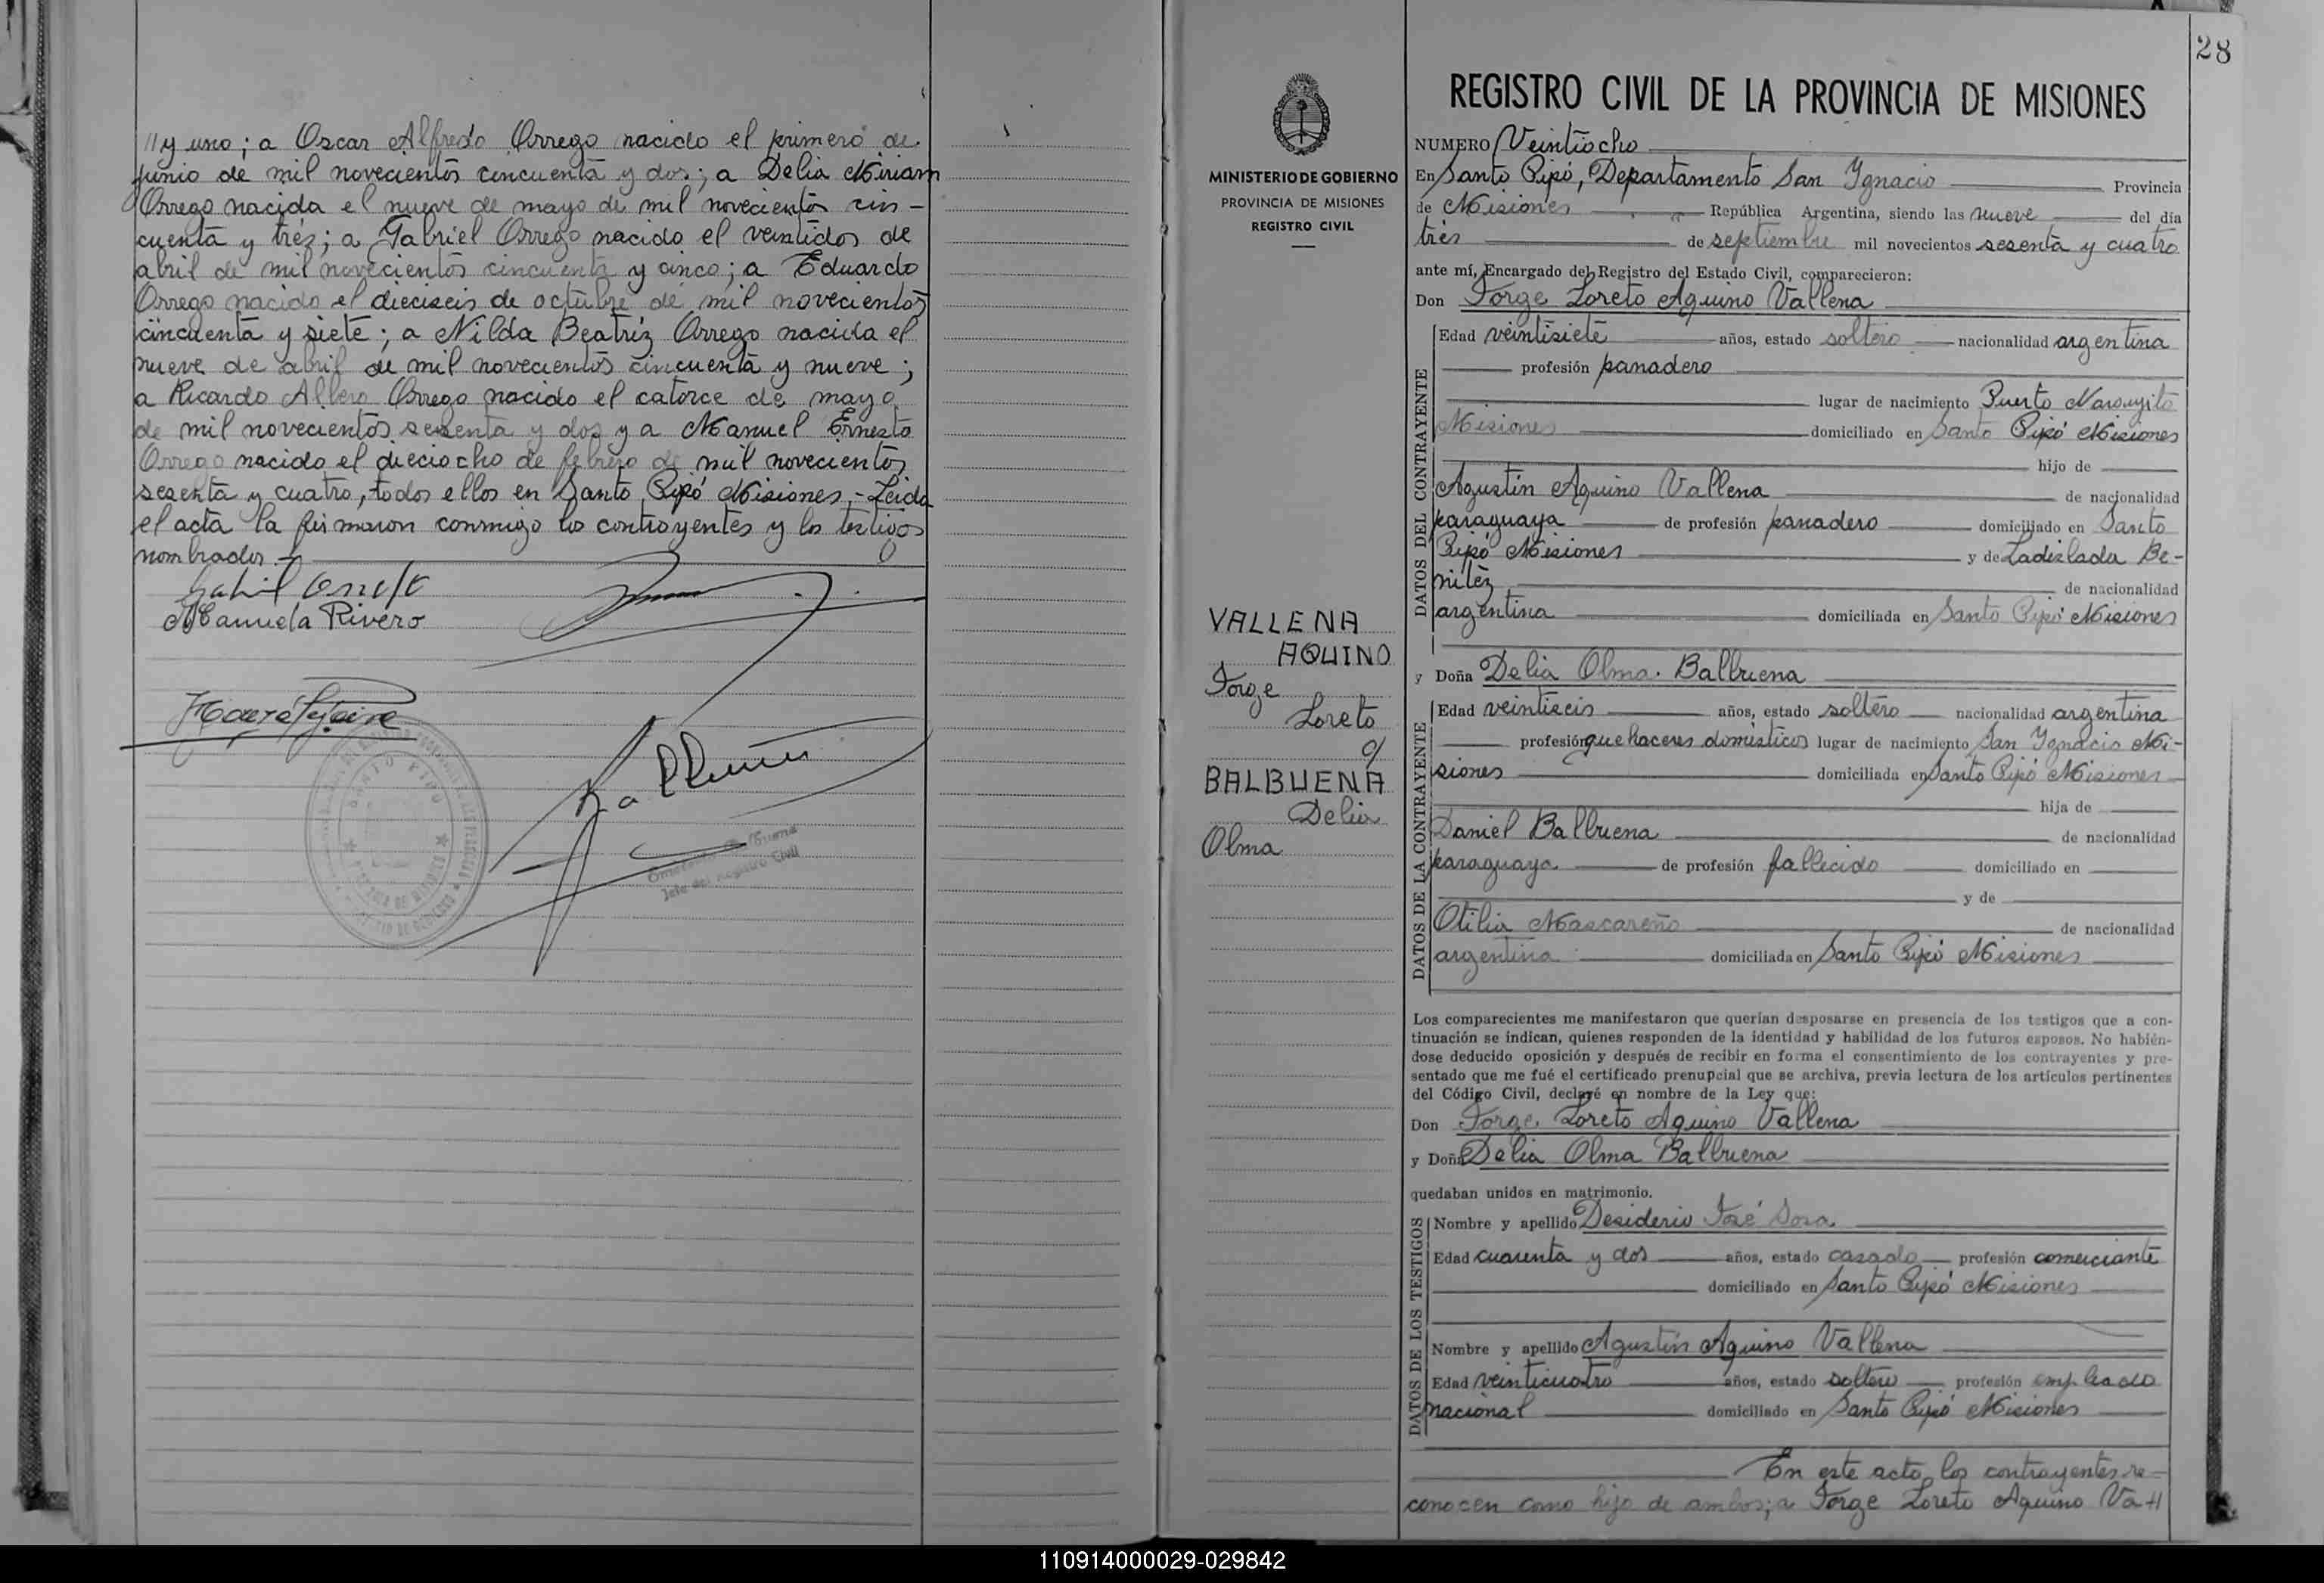 // y uno; a Oscar Alfredo Orrego nacido el primero de
junio de mil novecientos cincuenta y dos; a Delia Miriam
Orrego nacida el nueve de mayo de mil novecientos cin-
cuenta y tres; a Gabriel Orrego nacido el veintidos de
abril de mil novecientos cincuenta y cinco; a Eduardo
Orrego nacido el dieciseis de octubre de mil novecientos
cincuenta y siete; a Nilda Beatriz Orrego nacida el
nueve de abril de mil novecientos cincuenta y nueve;
a Ricardo Orrego nacido el catorce de mayo
de mil novecientos sesenta y dos y a Manuel Ernesto
Orrego nacido el dieciocho de febrero de mil novecientos
sesenta y cuatro, todos ellos en Santo Pipó Misiones.- Leida
el acta la firmaron conmigo los contrayentes y los testigos
nombrados.-
Manuela Rivero
SANTO PIPO
Jefe del Registro Civil
28
MINISTERIO DE GOBIERNO
PROVINCIA DE MISIONES
REGISTRO CIVIL
VALLENA
AQUINO
Jorge
Loreto
c/
BALBUENA
Delia
Olma
REGISTRO CIVIL DE LA PROVINCIA DE MISIONES
NUMERO Veintiocho
En Santo Pipó, Departamento San Ignacio Provincia
de Misiones República Argentina, siendo las nueve del día
tres de septiembre mil novecientos sesenta y cuatro
ante mí, Encargado del Registro del Estado Civil, comparecieron:
Don Jorge Loreto Aquino Vallena
DATOS DEL CONTRAYENTE
Edad veintisiete años, estado soltero nacionalidad argentina
profesión panadero
lugar de nacimiento Puerto
Misiones domiciliado en Santo Pipó Misiones
hijo de
Agustín Aquino Vallena de nacionalidad
paraguaya de profesión panadero domiciliado en Santo
Pipó Misiones y de Ladislada Be-
nitez de nacionalidad
argentina domiciliada en Santo Pipó Misiones
y Doña Delia Olma Balbuena
DATOS DE LA CONTRAYENTE
Edad veintiseis años, estado soltero nacionalidad argentina
profesión quehaceres domésticos lugar de nacimiento San Ignacio Mi-
siones domiciliada en Santo Pipó Misiones
hija de
Daniel Balbuena de nacionalidad
paraguaya de profesión fallecido domiciliado en
y de
Otilia Mascareño de nacionalidad
argentina domiciliada en Santo Pipó Misiones
Los comparecientes me manifestaron que querían desposarse en presencia de los testigos que a con-
tinuación se indican, quienes responden de la identidad y habilidad de los futuros esposos. No habién-
dose deducido oposición y después de recibir en forma el consentimiento de los contrayentes y pre-
sentado que me fué el certificado prenupcial que se archiva, previa lectura de los artículos pertinentes
del Código Civil, declaré en nombre de la Ley que:
Don Jorge Loreto Aquino Vallena
y Doña Delia Olma Balbuena
quedaban unidos en matrimonio.
DATOS DE LOS TESTIGOS
Nombre y apellido Desiderio José Sosa
Edad cuarenta y dos años, estado casado profesión comerciante
domiciliado en Santo Pipó Misiones
Nombre y apellido Agustín Aquino Vallena
Edad veinticuatro años, estado soltero profesión empleado
nacional domiciliado en Santo Pipó Misiones
En este acto los contrayentes re-
conocen como hijo de ambos; a Jorge Loreto Aquino Va//
110914000029-029842